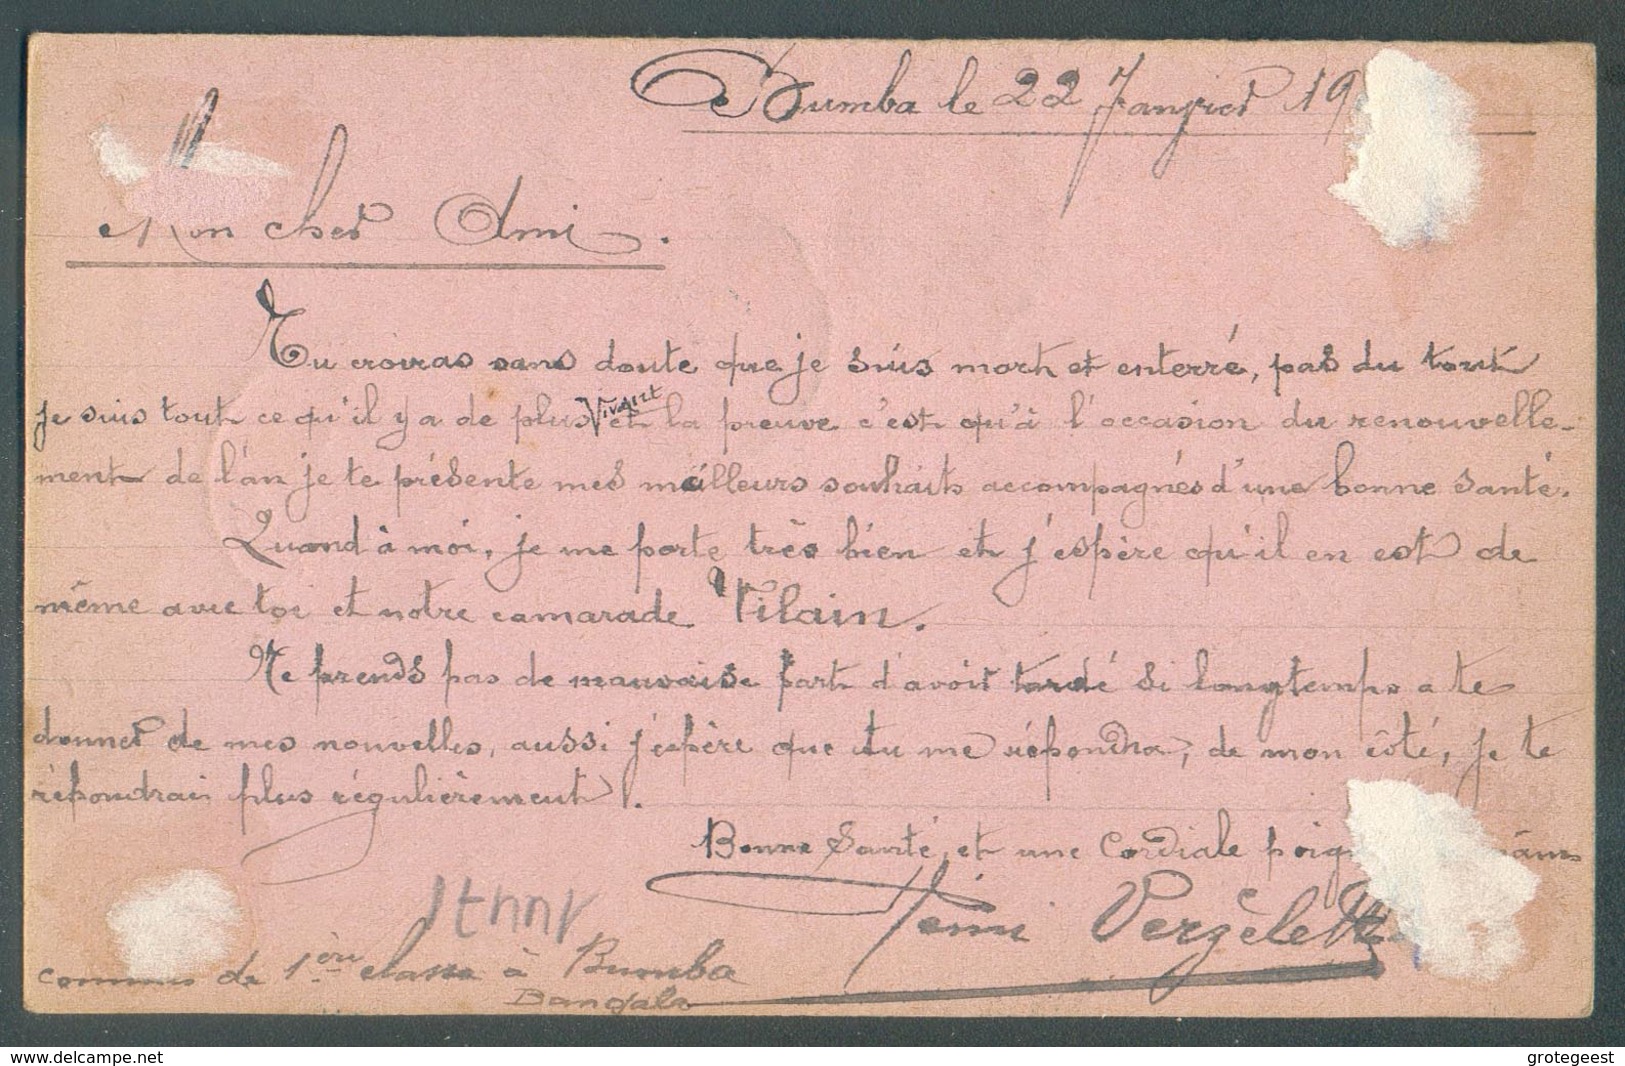 Bumba le 22 Janvier 19
Mon cher Ami.
Tu croiras sans doute que je suis mort et enterré, pas du tout
je suis tout ce qu'il y a de plus Vivant et la preuve c'est qu'à l'occasion du renouvelle-
ment de l'an je te présente mes meilleurs souhaits accompagnés d'une bonne santé.
Quand à moi, je me porte très bien et j'espère qu'il en est de
même avec toi et notre camarade Vilain.
Ne prends pas de mauvaise part d'avoir tardé si longtemps a te
donner de mes nouvelles, aussi j'espère que tu me répondra, de mon côté, je te
répondrai plus régulièrement.
Bonne Santé, et une Cordiale
commis de 1ère classe à Bumba
Bangala
www.delcampe.net
grotegeest